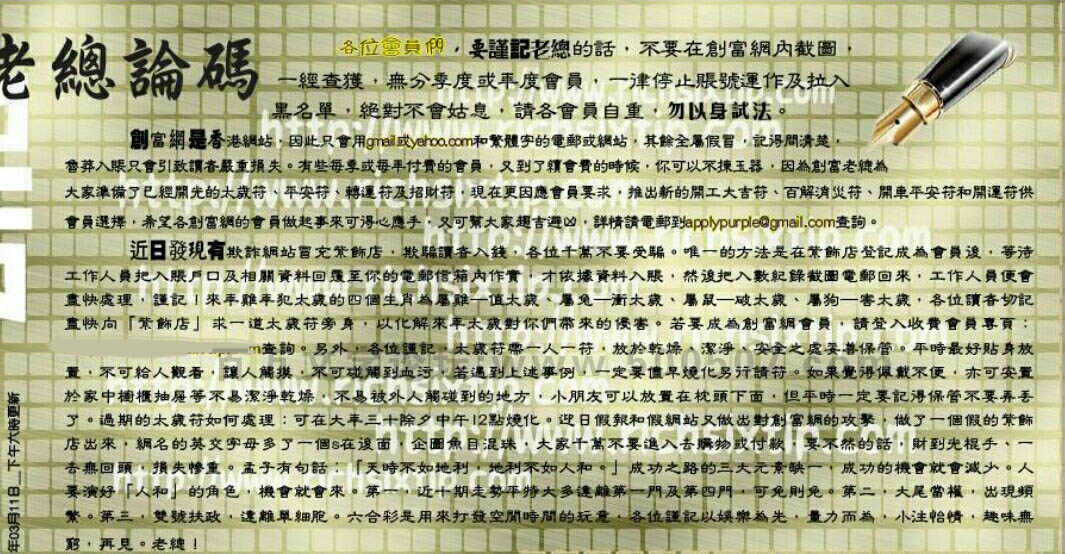 老總論碼
各位會員們，要謹記老總的話，不要在創富網內截圖，
一經查獲，無分季度或年度會員，一律停止賬號運作及拉入
黑名單，絕對不會姑息，請各會員自重，勿以身試法。
創富網是香港網站，因此只會用gmail或yahoo.com和繁體字的電郵或網站，其餘全屬假冒，記得問清楚，
魯莽入賬只會引致讀者嚴重損失。有些每季或每年付費的會員，又到了續會費的時候，你可以不揀玉器，因為創富老總為
大家準備了已經開光的太歲符、平安符、轉運符及招財符，現在更因應會員要求，推出新的開工大吉符、百解消災符、開車平安符和開運符供
會員選擇，希望各創富網的會員做起事來可得心應手，又可幫大家趨吉避凶，詳情請電郵到applypurple@gmail.com查詢。
近日發現有欺詐網站冒充紫飾店，欺騙讀者入錢，各位千萬不要受騙。唯一的方法是在紫飾店登記成為會員後，等待
工作人員把入賬戶口及相關資料回覆至你的電郵信箱內作實，才依據資料入賬，然後把入數紀錄截圖電郵回來，工作人員便會
盡快處理，謹記！來年雞年犯太歲的四個生肖為屬雞—值太歲、屬兔—衝太歲、屬鼠—破太歲、屬狗—害太歲，各位讀者切記
盡快向「紫飾店」求一道太歲符旁身，以化解來年太歲對你們帶來的侵害。若要成為創富網會員，請登入收費會員專頁：
m查詢。另外，各位謹記，太歲符需一人一符，放於乾燥、潔淨、安全之處妥善保管。平時最好貼身放
置，不可給人觀看，讓人觸摸，不可碰觸到血污，若遇到上述事例，一定要儘早燒化另行請符。如果覺得佩戴不便，亦可安置
於家中櫥櫃抽屜等不易潔淨乾燥，不易被外人觸碰到的地方。小朋友可以放置在枕頭下面，但平時一定要記得保管不要弄丟
了。過期的太歲符如何處理：可在大年三十除夕中午12點燒化。近日假報和假網站又做出對創富網的攻擊，做了一個假的紫飾
店出來，網名的英文字母多了一個s在後面，企圖魚目混珠，大家千萬不要進入去購物或付款，要不然的話，財到光棍手、一
去無回頭，損失慘重。孟子有句話：「天時不如地利，地利不如人和。」成功之路的三大元素缺一，成功的機會就會減少。人
要演好「人和」的角色，機會就會來。第一，近十期走勢平特大多遠離第一門及第四門，可免則免。第二，大尾當權，出現頻
繁。第三，雙號扶政，遠離單細胞。六合彩是用來打發空閒時間的玩意，各位謹記以娛樂為先，量力而為，小注怡情，趣味無
窮，再見。老總！
年03月11日__下午六時更新
http://www.richsixtlp.com